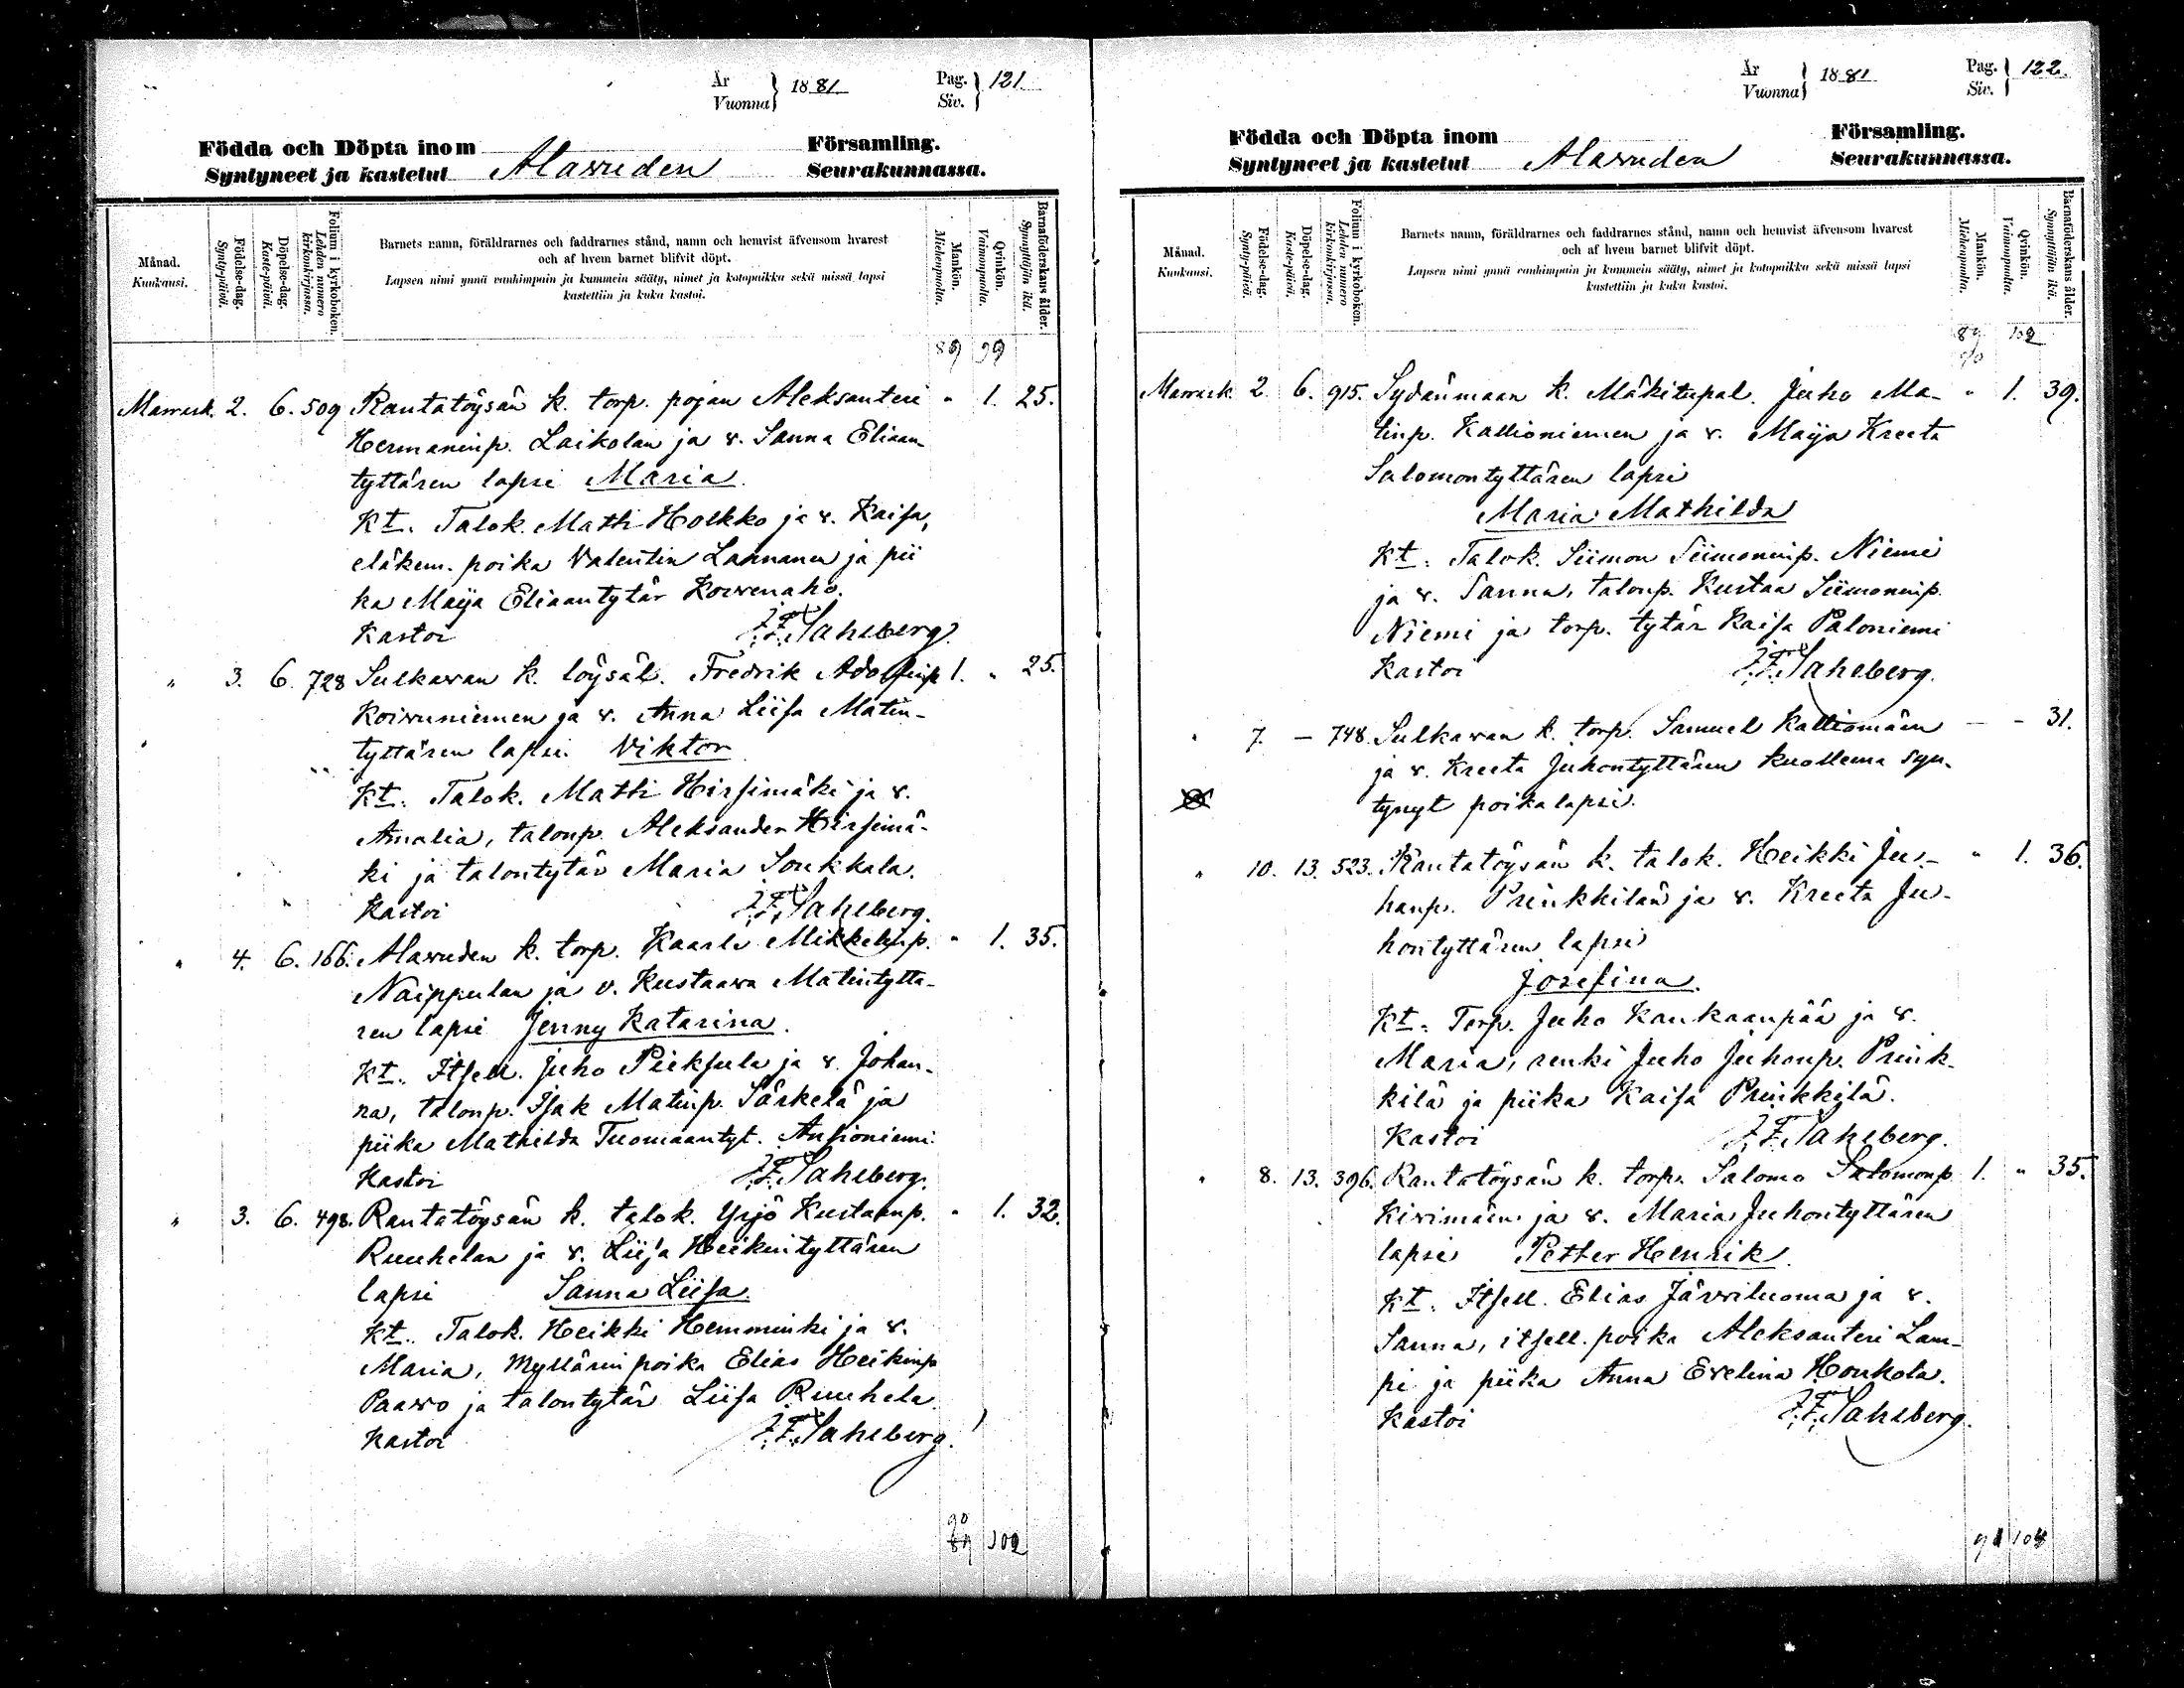 År
Vuonna } 1881. Pag.
Siv. } 121.
Födda och Döpta inom Församling.
Syntyneet ja kastetut Alavuden Seurakunnassa.
Månad.
Kuukausi.
Födelse-dag.
Synty-päivä.
Döpelse-dag.
Kaste-päivä.
Folium i kyrkoboken.
Lehden numero kirkonkirjassa.
Barnets namn, föräldrarnes och faddrarnes stånd, namn och hemvist äfvensom hvarest
och af hvem barnet blifvit döpt.
Lapsen nimi ynnä vanhimpain ja kummein sääty, nimet ja kotopaikka sekä missä lapsi
kastettiin ja kuka kastoi.
Mankön.
Miehenpuolta.
Qvinkön.
Vaimonpuolta.
Barnaföderskans ålder.
Synnyttäjän ikä.
89 99
Marrask. 2. 6. 509 Rantatöysän k. torp. pojan Aleksanteri " 1. 25.
Hermaninp. Laikolan ja v. Sanna Eliaan
tyttären lapsi Maria.
Kt. Talok. Matti Holkko ja v. Kaisa,
eläkem. poika Valentin Lahnanen ja pii
ka Maija Eliaantytär Koivenaho.
Kastoi J.F. Sahlberg.
" 3. 6. 728 Sulkavan k. löysäl. Fredrik Adolfinp 1. " 25.
Koivuniemen ja v. Anna Liisa Matin-
tyttären lapsi. Viktor
Kt. Talok. Matti Hirsimäki ja v.
Amalia, talonp. Aleksander Hirsimä-
ki ja talontytär Maria Soukkala.
Kastoi J.F. Sahlberg.
" 4. 6. 166. Alavuden k. torp. Kaarle Mikkelinp. " 1. 35.
Naippulan ja v. Kustaava Matintyttä-
ren lapsi Jenny Katarina.
Kt. Itsell. Juho Pieksula ja v. Johan-
na, talonp. Isak Matinp. Särkelä ja
piika Mathilda Tuomaantyt. Ansioniemi.
Kastoi J.F. Sahlberg.
" 3. 6. 498. Rantatöysän k. talok. Yrjö Kustaanp. " 1. 32.
Ruuhelan ja v. Liisa Heikintyttären
lapsi Sanna Liisa.
Kt. Talok. Heikki Hemminki ja v.
Maria, Myllärin poika Elias Heikinp
Paavo ja talontytär Liisa Ruuhela.
Kastoi J.F. Sahlberg.
90
89 102
År
Vuonna } 1881. Pag.
Siv. } 122.
Födda och Döpta inom Församling.
Syntyneet ja kastetut Alavuden Seurakunnassa.
Månad.
Kuukausi.
Födelse-dag.
Synty-päivä.
Döpelse-dag.
Kaste-päivä.
Folium i kyrkoboken.
Lehden numero kirkonkirjassa.
Barnets namn, föräldrarnes och faddrarnes stånd, namn och hemvist äfvensom hvarest
och af hvem barnet blifvit döpt.
Lapsen nimi ynnä vanhimpain ja kummein sääty, nimet ja kotopaikka sekä missä lapsi
kastettiin ja kuka kastoi.
Mankön.
Miehenpuolta.
Qvinkön.
Vaimonpuolta.
Barnaföderskans ålder.
Synnyttäjän ikä.
89 102
90
Marrask. 2 6. 915. Sydänmaan k. Mäkitupal. Juho Ma- " 1. 39.
tinp. Kallioniemen ja v. Maija Kreeta
Salomontyttären lapsi
Maria Mathilda
Kt. Talok. Siimon Siimoninp. Niemi
ja v. Sanna, talonp. Kustaa Siimoninp.
Niemi ja torp. tytär Kaisa Paloniemi
Kastoi J.F. Sahlberg.
" 7. — 748. Sulkavan k. torp. Samuel Kalliomäen — - 31.
ja v. Kreeta Juhontyttären kuollema syn-
tynyt poikalapsi.
" 10. 13. 523. Rantatöysän k. talok. Heikki Ju- " 1. 36.
hanp. Prinkkilän ja v. Kreeta Ju-
hontyttären lapsi
Josefina.
Kt. Torp. Juho Kankaanpää ja v.
Maria, renki Juho Juhonp. Prink-
kilä ja piika Kaisa Prinkkilä.
Kastoi J.F. Sahlberg.
" 8. 13. 396. Rantatöysän k. torp. Salomo Salomonp 1. " 35.
Kivimäen ja v. Maria Juhontyttären
lapsi Petter Henrik.
Kt. Itsell. Elias Järviluoma ja v.
Sanna, itsell. poika Aleksanteri Lam-
pi ja piika Anna Evelina Honkola.
Kastoi J.F. Sahlberg.
91 104